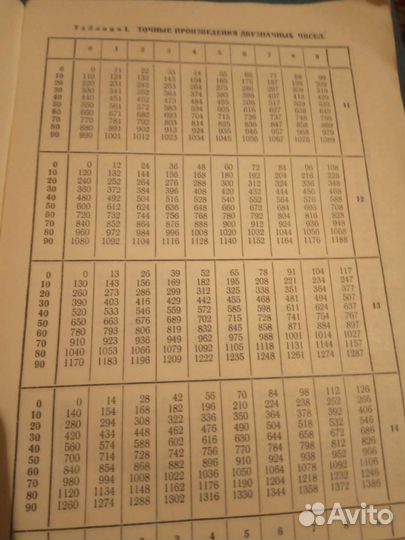 Таблица I. ТОЧНЫЕ ПРОИЗВЕДЕНИЯ ДВУЗНАЧНЫХ ЧИСЕЛ.
0 1 2 3 4 5 6 7 8 9
0 0 11 22 33 44 55 66 77 88 99
10 110 121 132 143 154 165 176 187 198 209
20 220 231 242 253 264 275 286 297 308 319
30 330 341 352 363 374 385 396 407 418 429
40 440 451 462 473 484 495 506 517 528 539 11
50 550 561 572 583 594 605 616 627 638 649
60 660 671 682 693 704 715 726 737 748 759
70 770 781 792 803 814 825 836 847 858 869
80 880 891 902 913 924 935 946 957 968 979
90 990 1001 1012 1023 1034 1045 1056 1067 1078 1089
0 0 12 24 36 48 60 72 84 96 108
10 120 132 144 156 168 180 192 204 216 228
20 240 252 264 276 288 300 312 324 336 348
30 360 372 384 396 408 420 432 444 456 468
40 480 492 504 516 528 540 552 564 576 588 12
50 600 612 624 636 648 660 672 684 696 708
60 720 732 744 756 768 780 792 804 816 828
70 840 852 864 876 888 900 912 924 936 948
80 960 972 984 996 1008 1020 1032 1044 1056 1068
90 1080 1092 1104 1116 1128 1140 1152 1164 1176 1188
0 0 13 26 39 52 65 78 91 104 117
10 130 143 156 169 182 195 208 221 234 247
20 260 273 286 299 312 325 338 351 364 377
30 390 403 416 429 442 455 468 481 494 507
40 520 533 546 559 572 585 598 611 624 637 13
50 650 663 676 689 702 715 728 741 754 767
60 780 793 806 819 832 845 858 871 884 897
70 910 923 936 949 962 975 988 1001 1014 1027
80 1040 1053 1066 1079 1092 1105 1118 1131 1144 1157
90 1170 1183 1196 1209 1222 1235 1248 1261 1274 1287
0 0 14 28 42 56 70 84 98 112 126
10 140 154 168 182 196 210 224 238 252 266
20 280 294 308 322 336 350 364 378 392 406
30 420 434 448 462 476 490 504 518 532 546
40 560 574 588 602 616 630 644 658 672 686 14
50 700 714 728 742 756 770 784 798 812 826
60 840 854 868 882 896 910 924 938 952 966
70 980 994 1008 1022 1036 1050 1064 1078 1092 1106
80 1120 1134 1148 1162 1176 1190 1204 1218 1232 1246
90 1260 1274 1288 1302 1316 1330 1344 1358 1372 1386
0 1 2 3 4 5 6 7 8
Avito